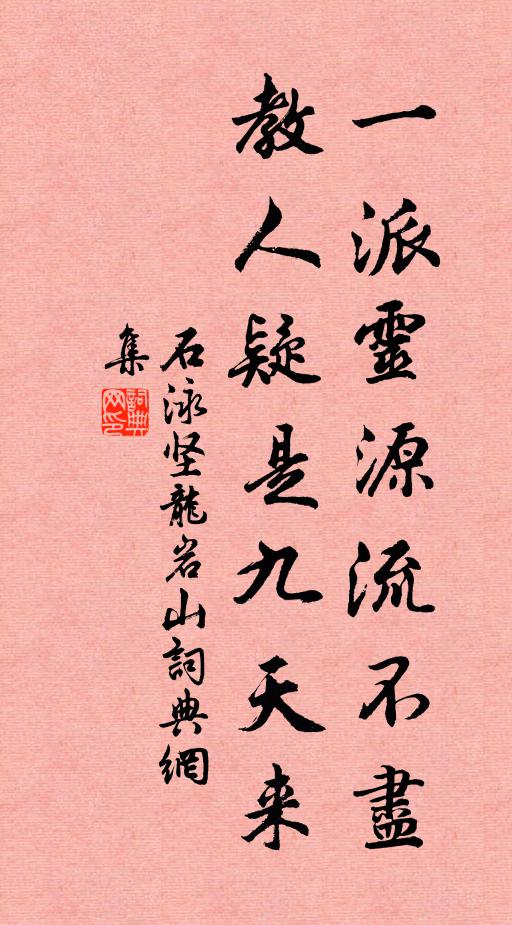 一派靈源流不盡
教人疑是九天来
石泳坚龍岩山詞典網
集
詞典
网印